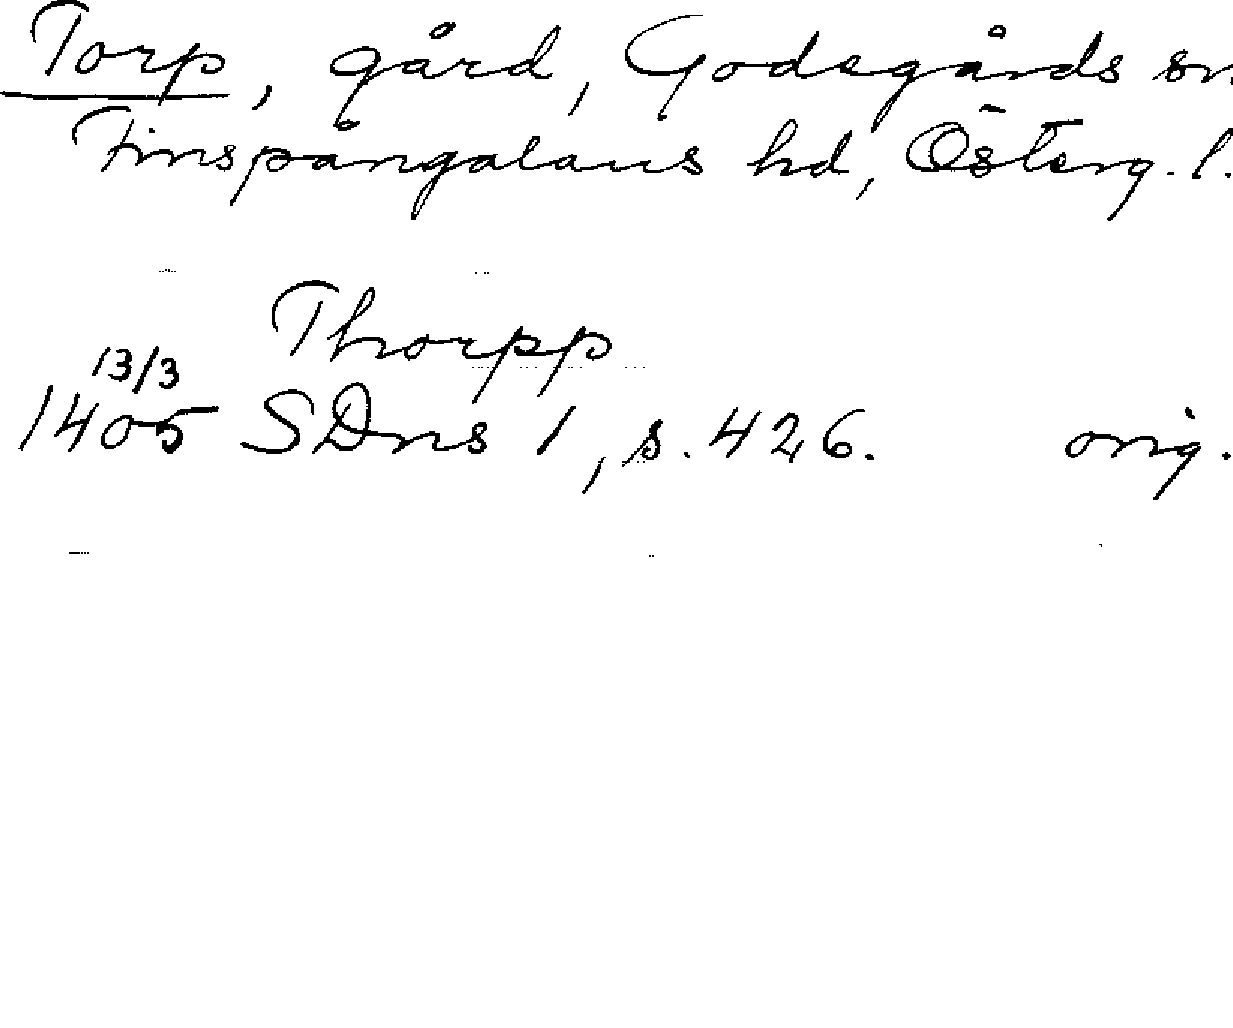 Torp, gård, Godegårds sn
Finspångaläns hd, Österg. l.
Thorpp
13/3
1405 SDns 1, s. 426. orig.